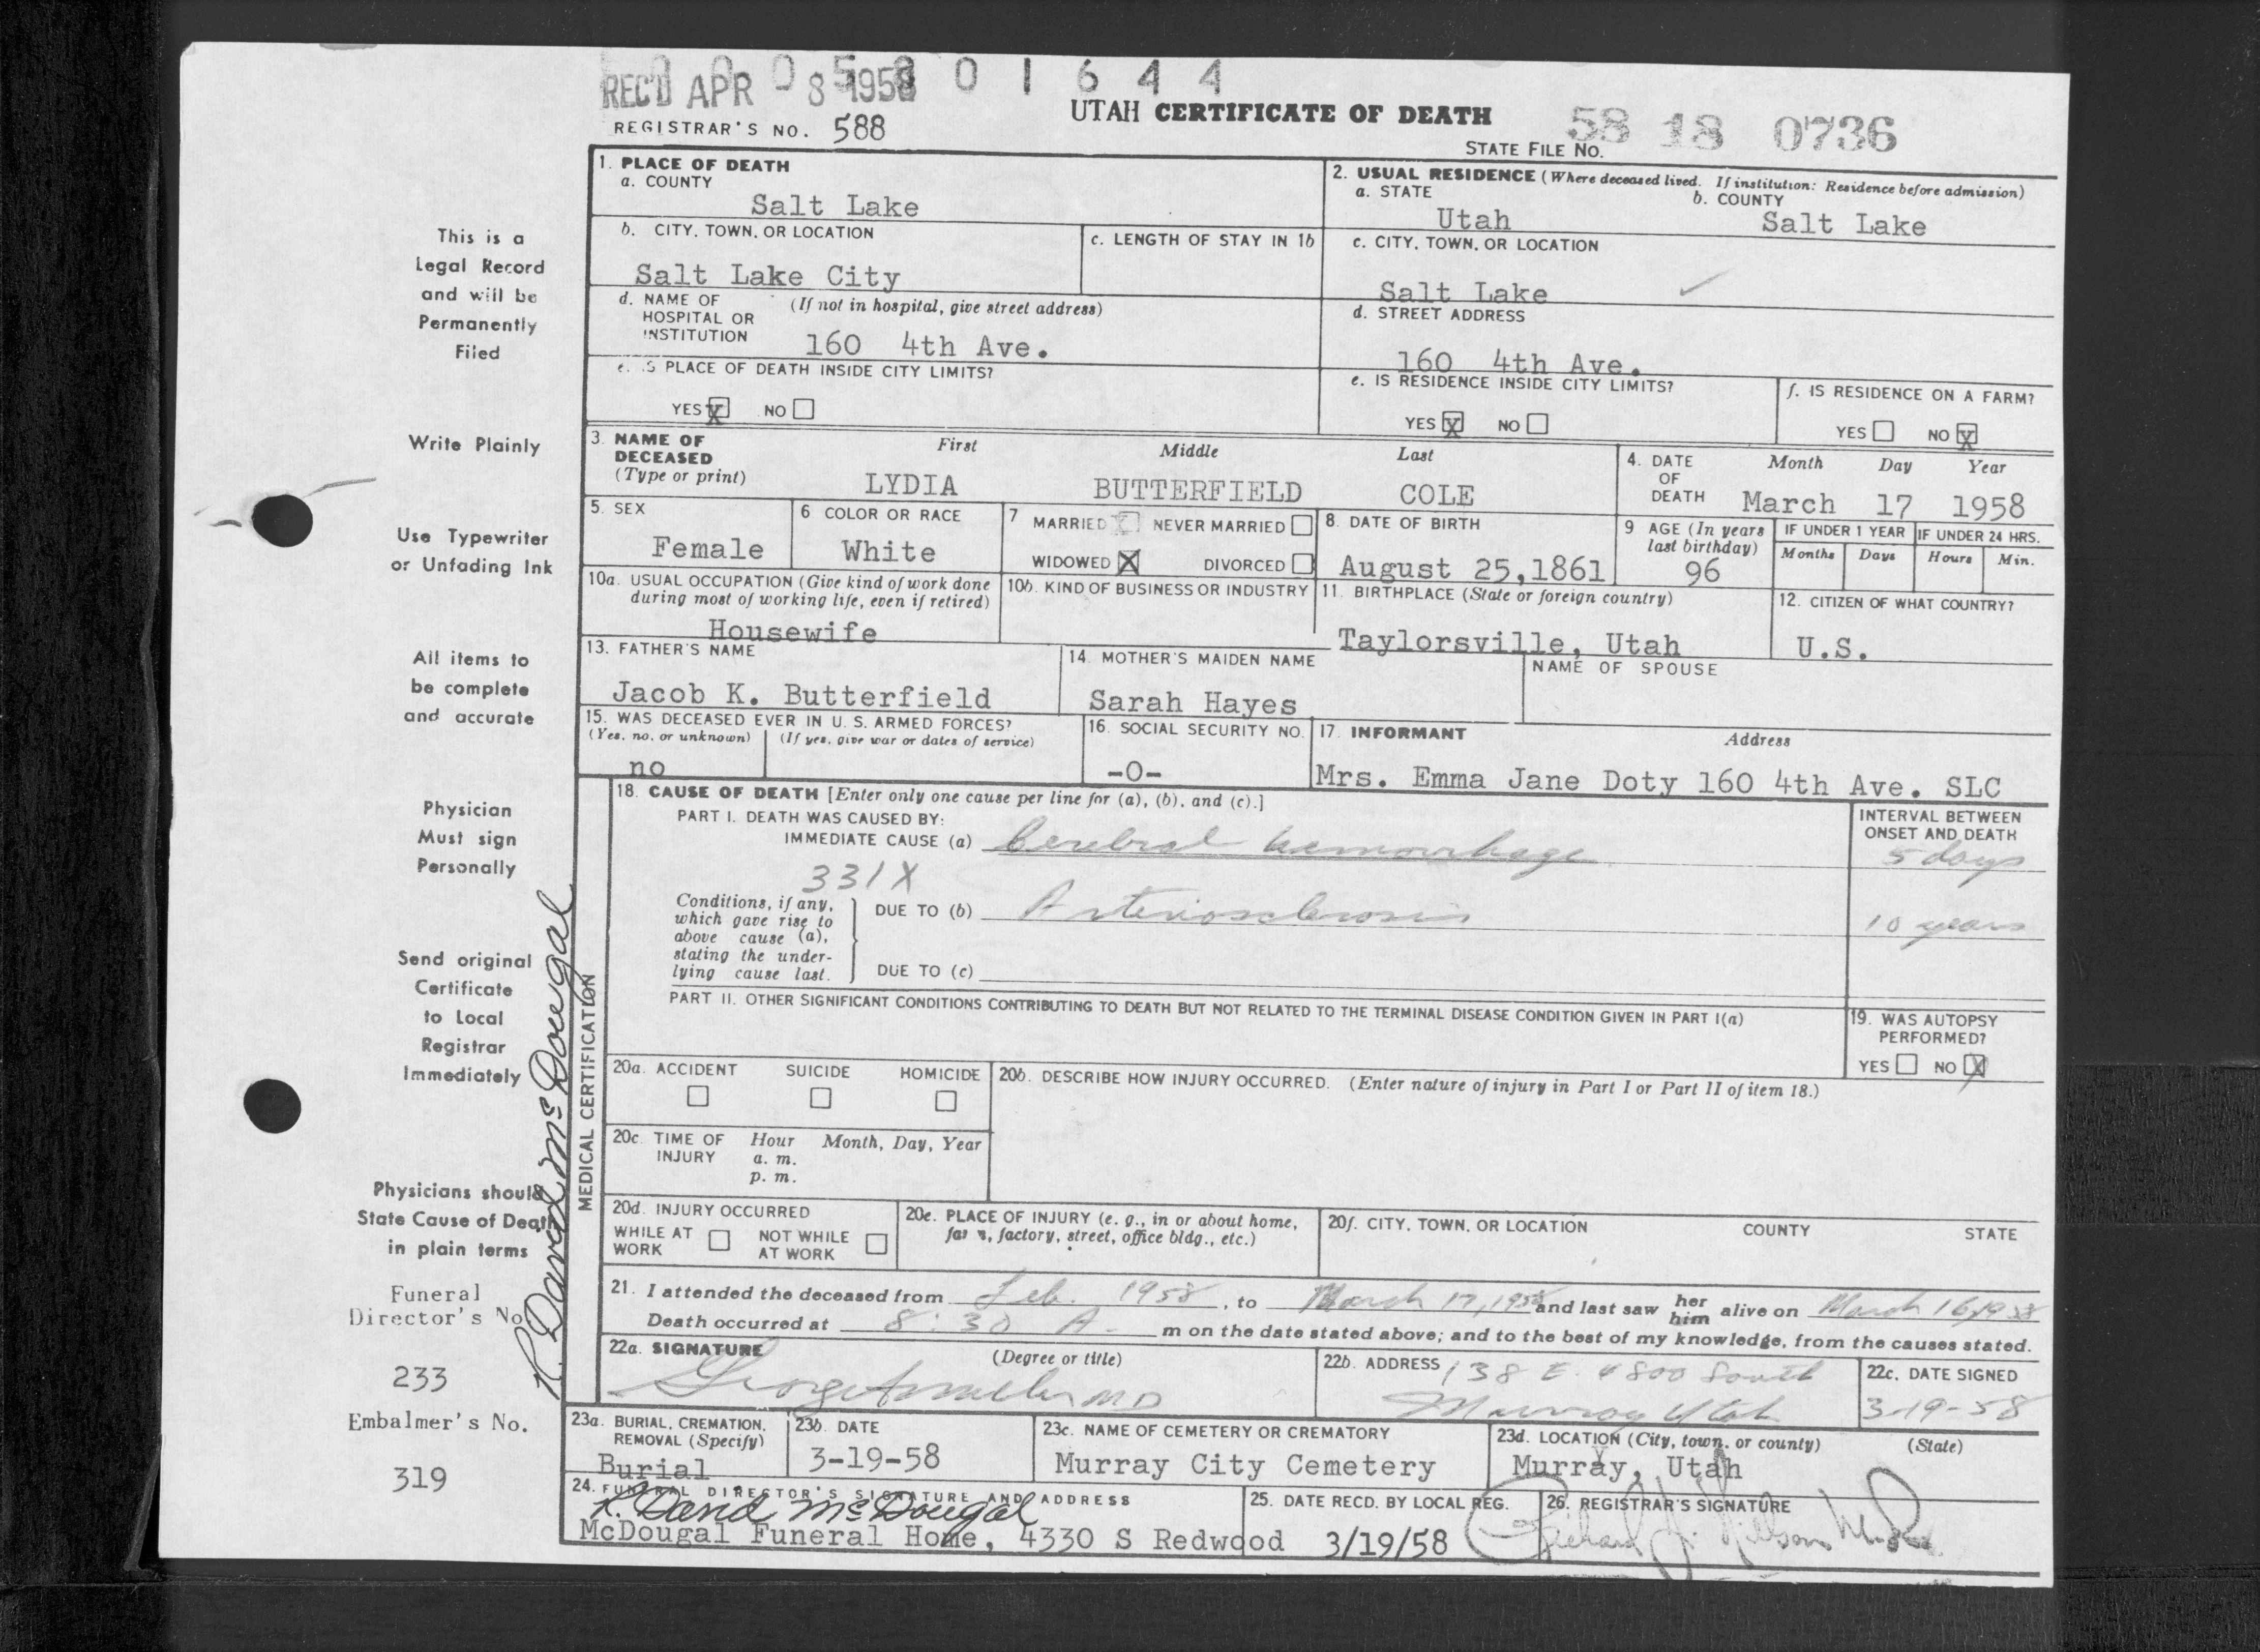 REC'D APR - 8 1958
0 1 6 4 4
UTAH CERTIFICATE OF DEATH
REGISTRAR'S NO. 588
STATE FILE NO. 58 18 0736
1. PLACE OF DEATH
a. COUNTY
Salt Lake
2. USUAL RESIDENCE (Where deceased lived. If institution: Residence before admission)
a. STATE b. COUNTY
Utah Salt Lake
b. CITY, TOWN, OR LOCATION c. LENGTH OF STAY IN 1b
Salt Lake City
c. CITY, TOWN, OR LOCATION
Salt Lake
d. NAME OF HOSPITAL OR INSTITUTION (If not in hospital, give street address)
160 4th Ave.
d. STREET ADDRESS
160 4th Ave.
e. IS PLACE OF DEATH INSIDE CITY LIMITS?
YES X NO
e. IS RESIDENCE INSIDE CITY LIMITS?
YES X NO
f. IS RESIDENCE ON A FARM?
YES NO X
3. NAME OF DECEASED (Type or print) First Middle Last
LYDIA BUTTERFIELD COLE
4. DATE OF DEATH Month Day Year
March 17 1958
5. SEX
Female
6 COLOR OR RACE
White
7 MARRIED NEVER MARRIED
WIDOWED X DIVORCED
8. DATE OF BIRTH
August 25,1861
9 AGE (In years last birthday)
96
IF UNDER 1 YEAR IF UNDER 24 HRS.
Months Days Hours Min.
10a. USUAL OCCUPATION (Give kind of work done during most of working life, even if retired)
Housewife
10b. KIND OF BUSINESS OR INDUSTRY
11. BIRTHPLACE (State or foreign country)
Taylorsville, Utah
12. CITIZEN OF WHAT COUNTRY?
U.S.
13. FATHER'S NAME
Jacob K. Butterfield
14. MOTHER'S MAIDEN NAME
Sarah Hayes
NAME OF SPOUSE
15. WAS DECEASED EVER IN U. S. ARMED FORCES?
(Yes, no, or unknown) (If yes, give war or dates of service)
no
16. SOCIAL SECURITY NO.
-0-
17. INFORMANT Address
Mrs. Emma Jane Doty 160 4th Ave. SLC
MEDICAL CERTIFICATION
18. CAUSE OF DEATH [Enter only one cause per line for (a), (b), and (c).]
PART I. DEATH WAS CAUSED BY:
IMMEDIATE CAUSE (a) Cerebral hemorrhage
INTERVAL BETWEEN ONSET AND DEATH
5 days
331X
Conditions, if any, which gave rise to above cause (a), stating the underlying cause last.
DUE TO (b) Arteriosclerosis
10 years
DUE TO (c)
PART II. OTHER SIGNIFICANT CONDITIONS CONTRIBUTING TO DEATH BUT NOT RELATED TO THE TERMINAL DISEASE CONDITION GIVEN IN PART I(a)
19. WAS AUTOPSY PERFORMED?
YES NO X
20a. ACCIDENT SUICIDE HOMICIDE
20b. DESCRIBE HOW INJURY OCCURRED. (Enter nature of injury in Part I or Part II of item 18.)
20c. TIME OF INJURY Hour Month, Day, Year
a. m.
p. m.
20d. INJURY OCCURRED
WHILE AT WORK NOT WHILE AT WORK
20e. PLACE OF INJURY (e. g., in or about home, farm, factory, street, office bldg., etc.)
20f. CITY, TOWN, OR LOCATION COUNTY STATE
21. I attended the deceased from Feb. 1958, to March 17, 1958 and last saw her him alive on March 16, 1958
Death occurred at 8:30 A. m on the date stated above; and to the best of my knowledge, from the causes stated.
22a. SIGNATURE (Degree or title)
George MD
22b. ADDRESS 138 E. 4800 South
Murray Utah
22c. DATE SIGNED
3-19-58
23a. BURIAL, CREMATION, REMOVAL (Specify)
Burial
23b. DATE
3-19-58
23c. NAME OF CEMETERY OR CREMATORY
Murray City Cemetery
23d. LOCATION (City, town, or county) (State)
Murray, Utah
24. FUNERAL DIRECTOR'S SIGNATURE AND ADDRESS
R. David McDougal
McDougal Funeral Home, 4330 S Redwood
25. DATE RECD. BY LOCAL REG.
3/19/58
26. REGISTRAR'S SIGNATURE
This is a
Legal Record
and will be
Permanently
Filed
Write Plainly
Use Typewriter
or Unfading Ink
All items to
be complete
and accurate
Physician
Must sign
Personally
Send original
Certificate
to Local
Registrar
Immediately
Physicians should
State Cause of Death
in plain terms
Funeral
Director's No.
233
Embalmer's No.
319
R. David McDougal